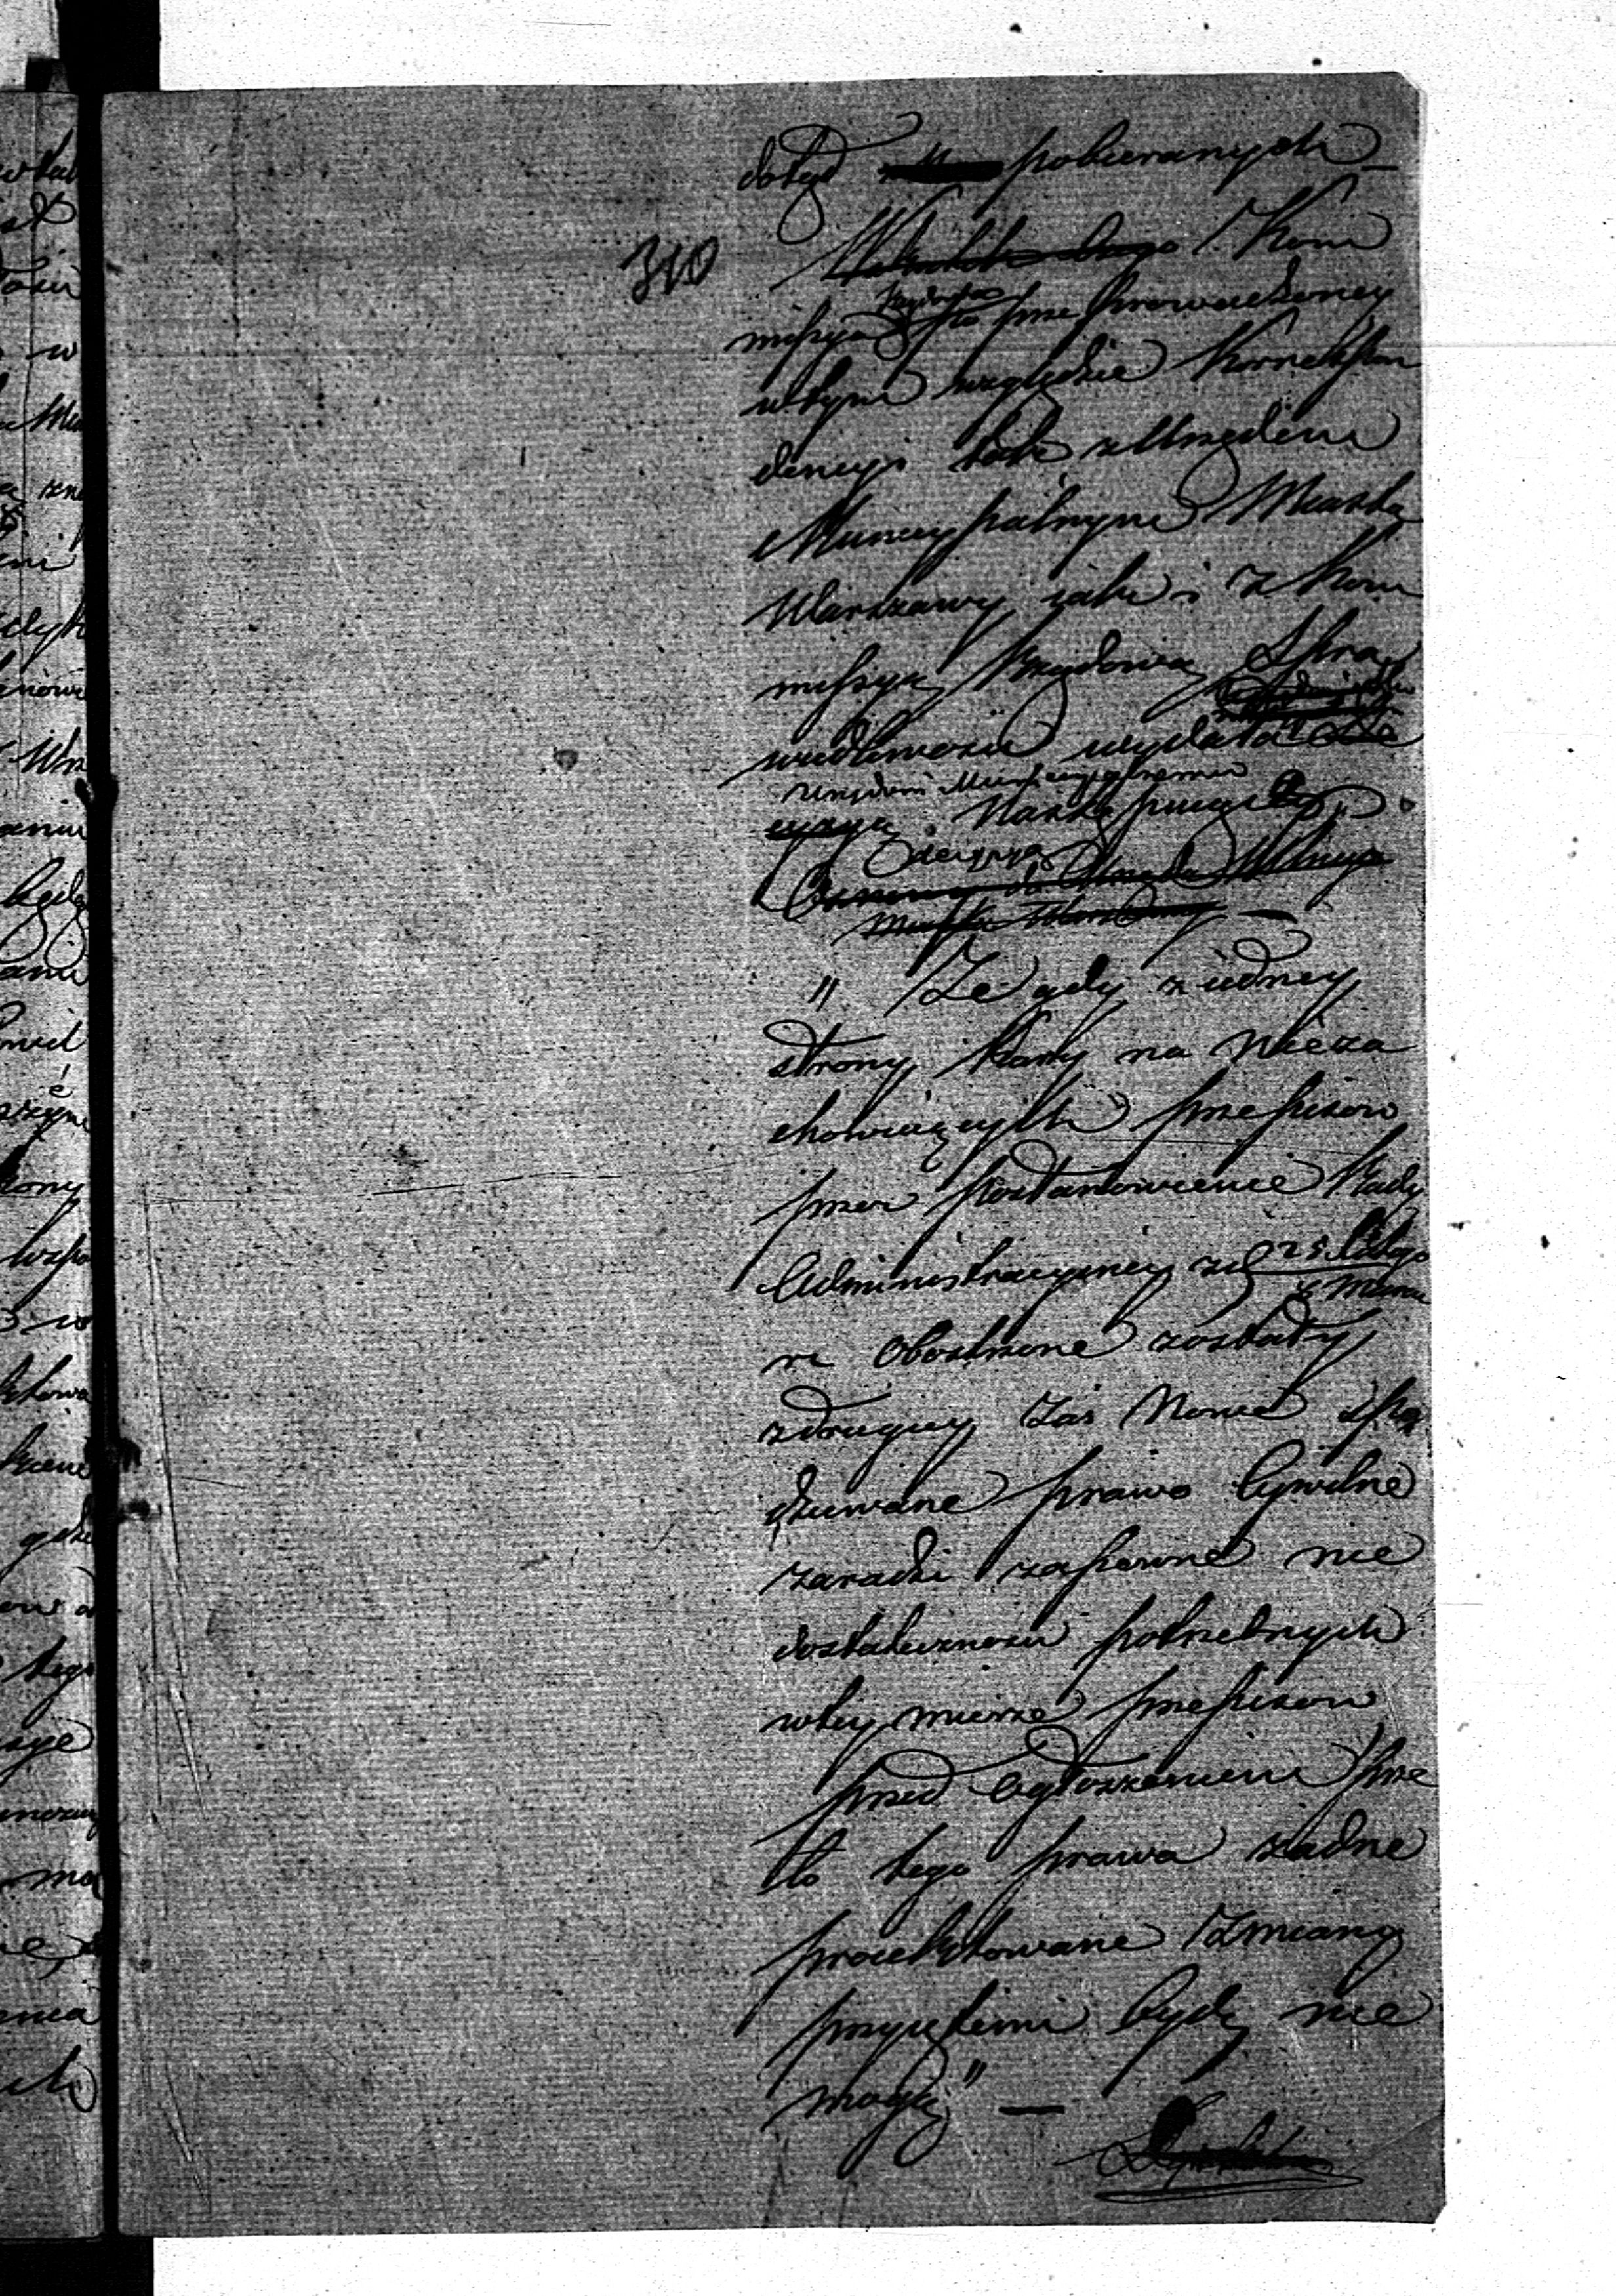 310
dotąd pobieranych
Kom
missya Rządowa po prze prowadzoney
w tym względzie Korrespon
dencyi tak z Urzędem
Municypalnym Miasta
Warszawy jako i z Kom
missyą Rządową Spra
wiedliwości wydała
Urzędowi Municypalnemu
Następuiącą
decyzyą
" Że gdy z iedney
strony Kary na nieza
chowuiących przepisów
przez Postanowienie Rady
Administracyiney z d 25 Lutego
Marca
obostrzone zostały
z drugiey zaś Nowe Spo
dziewane prawo Cywilne
zaradzi zapewne nie
dostateczności potrzebnych
w tey mierze przepisów
przed ogłoszeniem prze
to tego prawa żadne
proiektowane zmiany
przyiętemi bydź nie
mogą" —